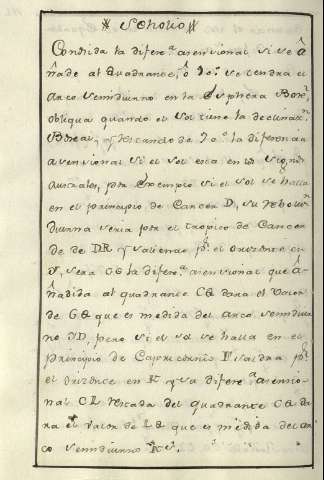 Scholio
Conosida la difer.ª asensional si se â
ñade al quadrante, ô 90.º se tendra el
arco semidiurno en la Esphera
obliqua quando el sol tiene la declinan.
Boreal, y restando de 90.º la diferencia
asensional si el sol esta en los signos
australes, por Exemplo si el sol se halla
en el principio de Cancer D, su rebolu.
diurna sera por el tropico de Cancer
de DR y saliendo p.r el orizonte en
sera CG la difer.ª asensional que â
ñadida al quadrante CQ dara el valor
de GQ que es medida del arco semidiur
no D, pero si el sol se halla en el
principio de Capricornio saldra p.r
el orizonte en K y su difere.ª asensio
nal CL restada del quadrante CQ da
ra el valor de LQ que es medida del ar
co semidiurno